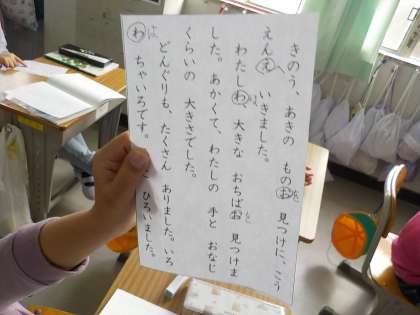 きのう、あきの　もの お を　見つけに、こう
えん え　いきました。
わたし わ は　大きな　おちば お を　見つけま
した。あかくて、わたしの　手と　おなじ
くらいの　大きさでした。
どんぐりも、たくさん　ありました。いろ
わ は　ちゃいろです。　ひろいました。